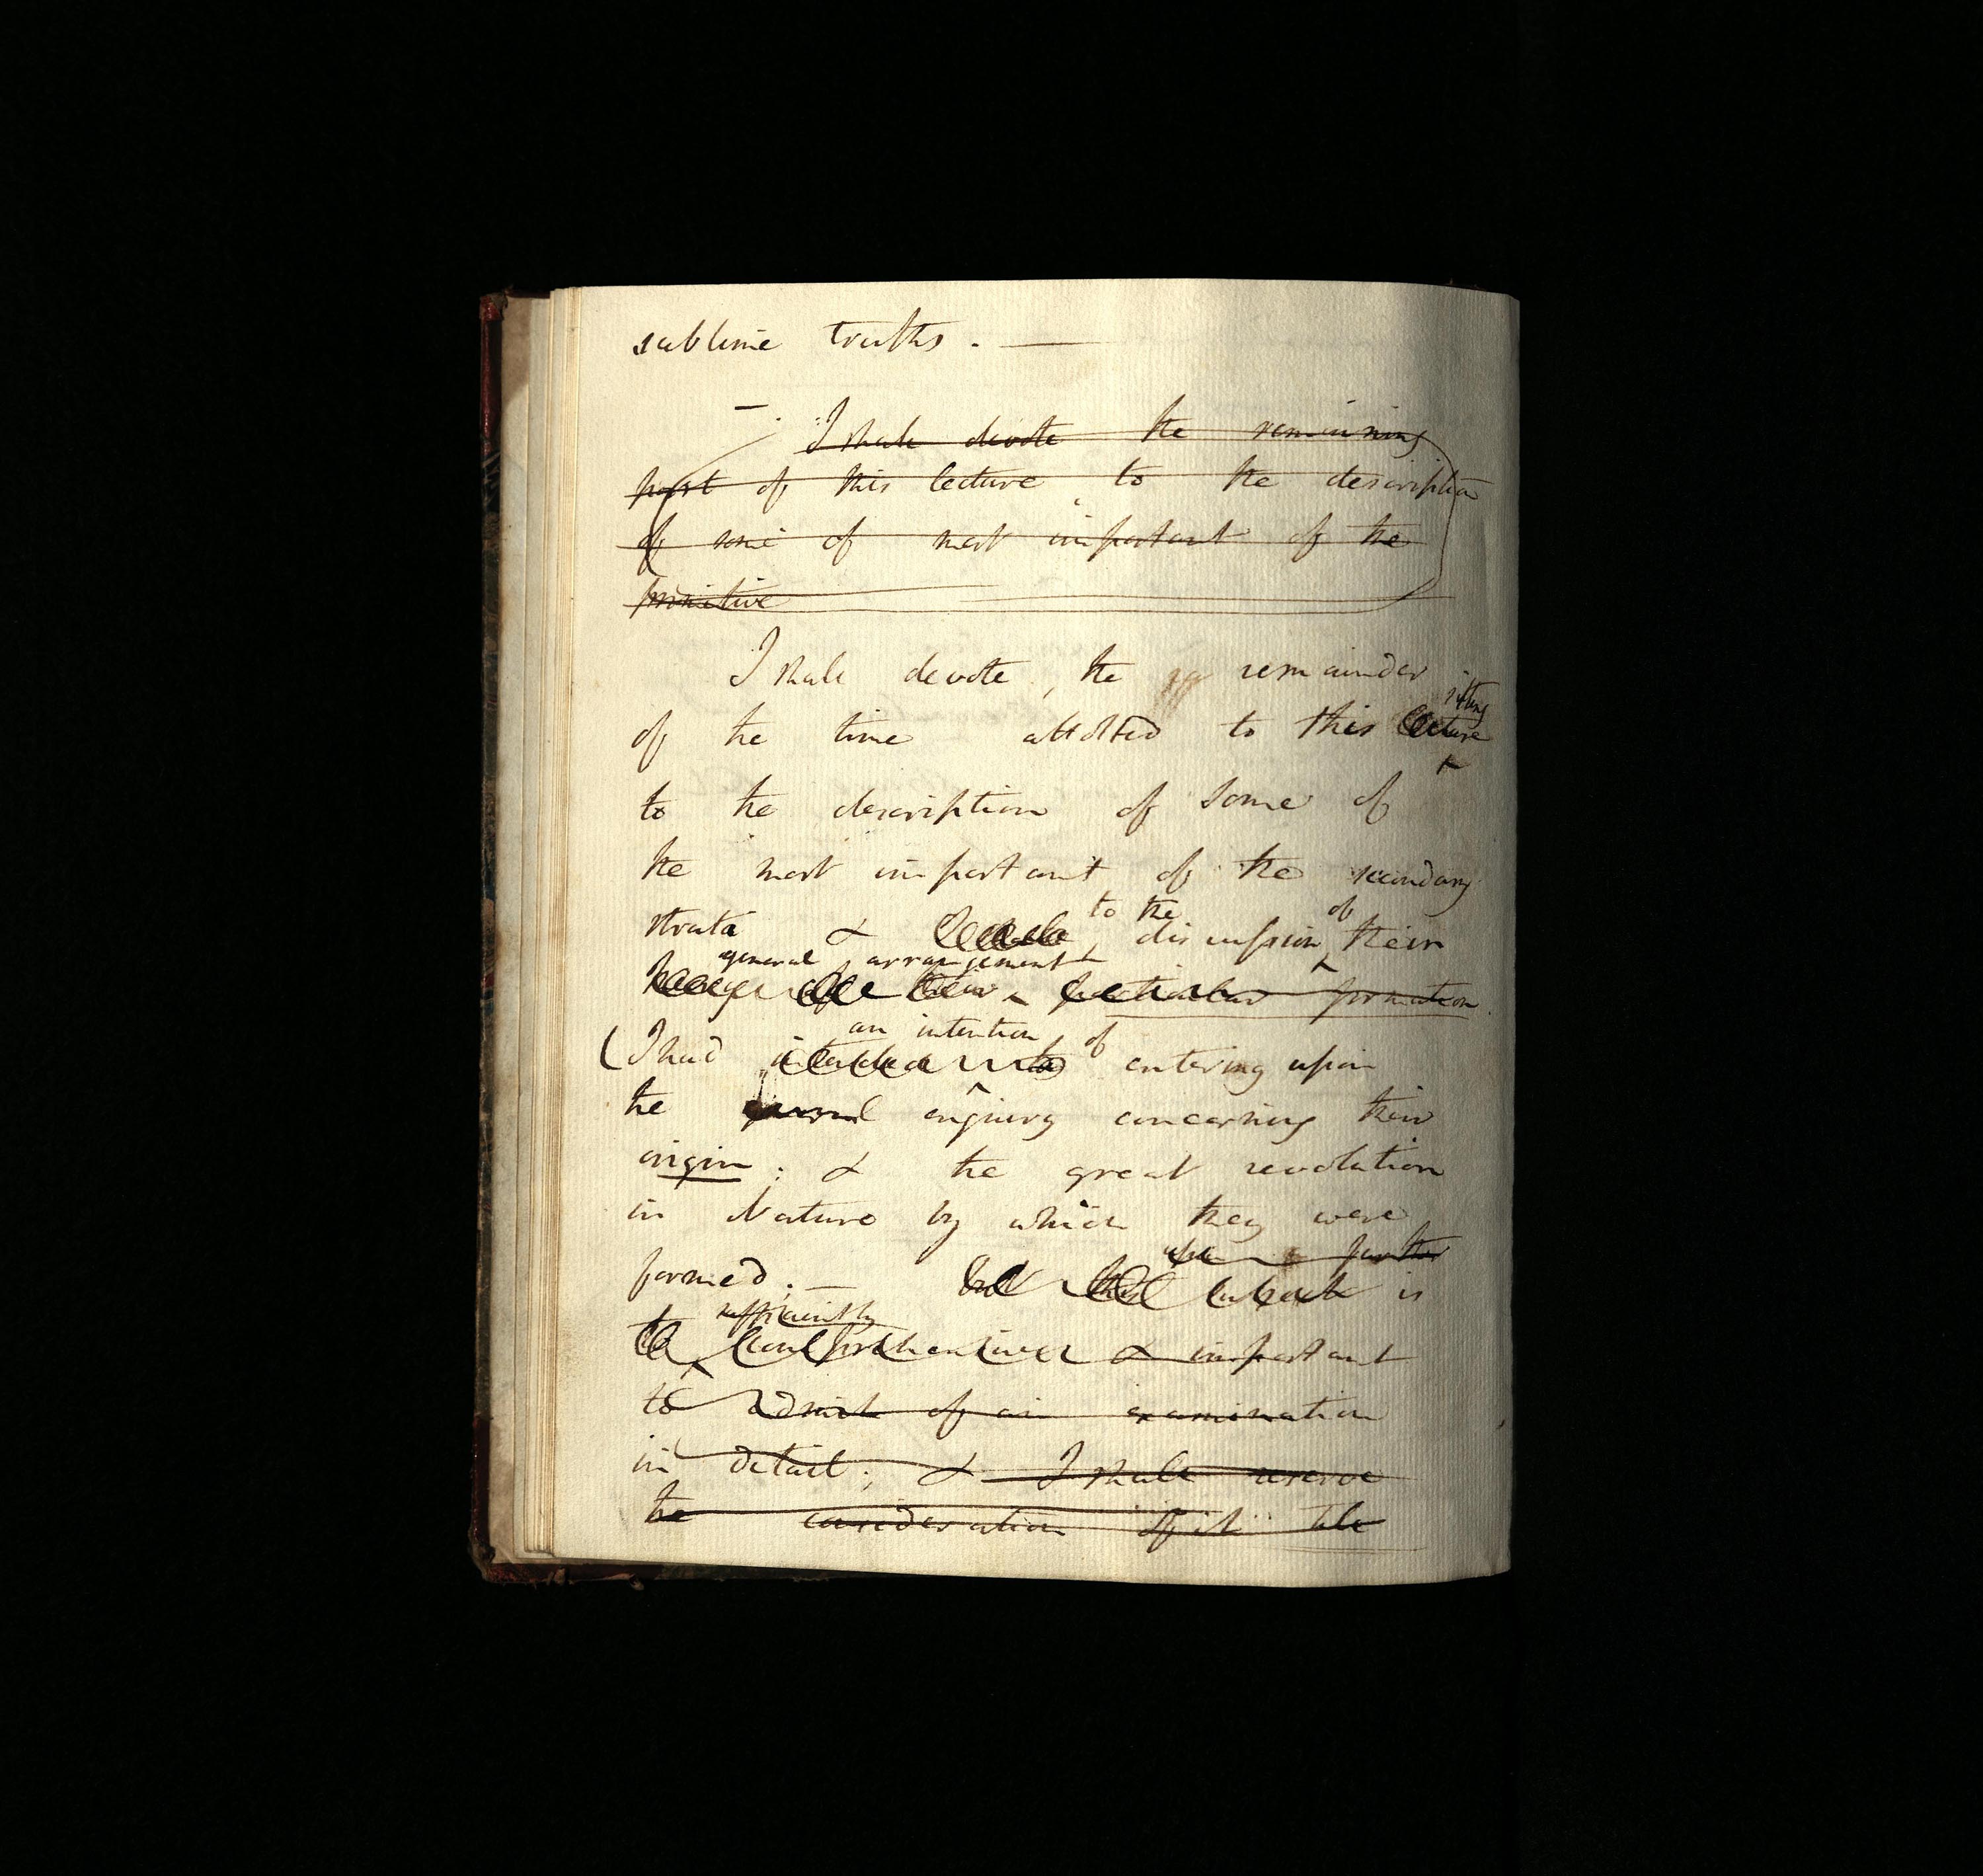 sublime truths. —
— I shall devote the remaining
part of this lecture to the description
of some of most important of the
primitive
I shall devote, the remainder
sitting
of the time allotted to this lecture
to the description of some of
the most important of the secondary
to the of
strata & discussion their
general arrangement
of their particular formation
an intention of
(I had intended entering upon
the enquiry concerning their
origin; & the great revolution
in Nature by which they were
formed. —
further
but this subject is
sufficiently
comprehensive & important
to admit of an examination
in detail; & I shall reserve
the consideration of it till